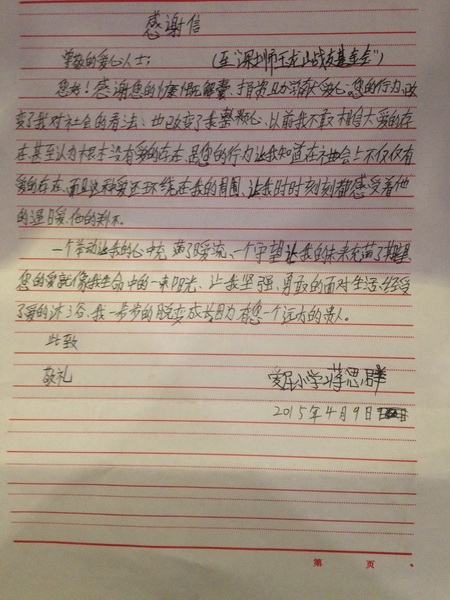 感谢信
尊敬的爱心人士：（至“深圳师王龙山战友基金会”）
您好！感谢您的慷慨解囊、捐资助   献爱心，您的行为，改
变了我对社会的看法、也改变了我整颗心，以前我不敢相信大爱的存
在，甚至认为根本没有爱的存在，是您的行为让我知道在社会上不仅仅有
爱的存在，而且这种爱还环绕在我的周围，让我时时刻刻都感受着他
的温暖，他的 不。
一个举动让我的心中充满了暖流，一个守望让我的未来充满了期望
您的爱就像我生命中的一束阳光，让我坚强、勇敢的面对生活，经受
了爱的沐浴，我一步步的脱变成长因为有您一个远方的贵人。
此致
敬礼
爱 小学：蒋思群
2015年4月9日
第 页